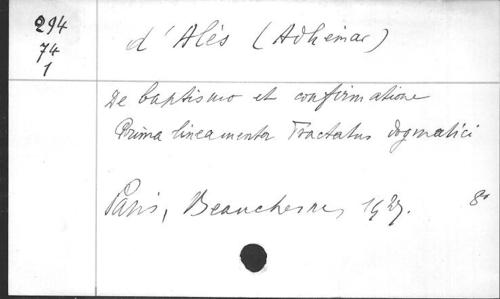 294
74
1
d'Alès (Adhémar)
De baptismo et confirmatione
Prima lineamenta Tractatus dogmatici
Paris, Beauchesne, 1927. 8°